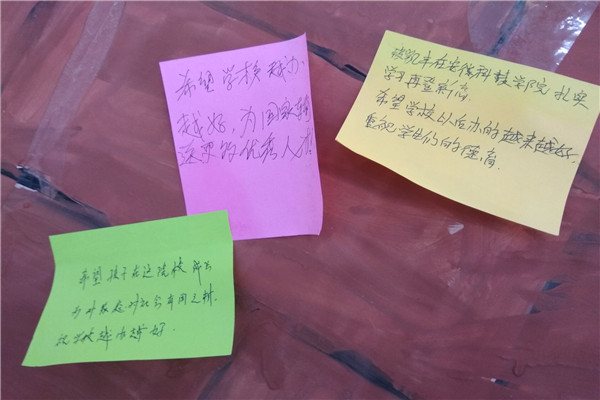 希望学校越办
越好，为国家输
送更多优秀人才！
在安徽科技学院扎实
学习再登新高.
希望学校以后办的越来越好.
重视学生们的德育.
希望孩子在这院校
对社会有用之材.
祝学校越办越好.